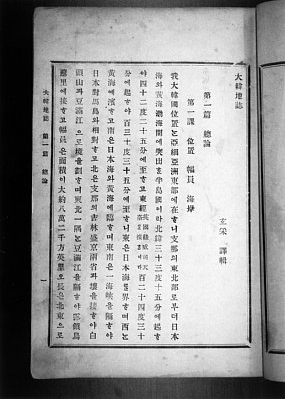 大韓地誌
玄采 譯輯
第一篇 總論
第一課 位置 幅員 海岸
我大韓國位置는亞細亞洲東部에在ᄒᆞ니支那의東北部로부터日本
海와黃海渤海間에突出ᄒᆞᆫ半島國이라北緯三十三度十五分에起ᄒᆞ
야四十二度二十五分에至ᄒᆞ고東經英國綠威百二十四度三十
分에起ᄒᆞ야百三十度三十五分에至ᄒᆞ니東은日本海를界ᄒᆞ며西는
黃海에濱ᄒᆞ고南은日本海와黃海에臨ᄒᆞ며東南은一海峽을隔ᄒᆞ야
日本對馬島와相對ᄒᆞ고北은支那의吉林盛京兩省과壤을接ᄒᆞ야白
頭山과豆滿江으로境을劃ᄒᆞ며東北一隅는豆滿江을隔ᄒᆞ야露領烏
蘇里에接ᄒᆞ고幅員은面積이大約八萬二千方英里오長은北東으로
大韓地誌 第一篇 總論 一